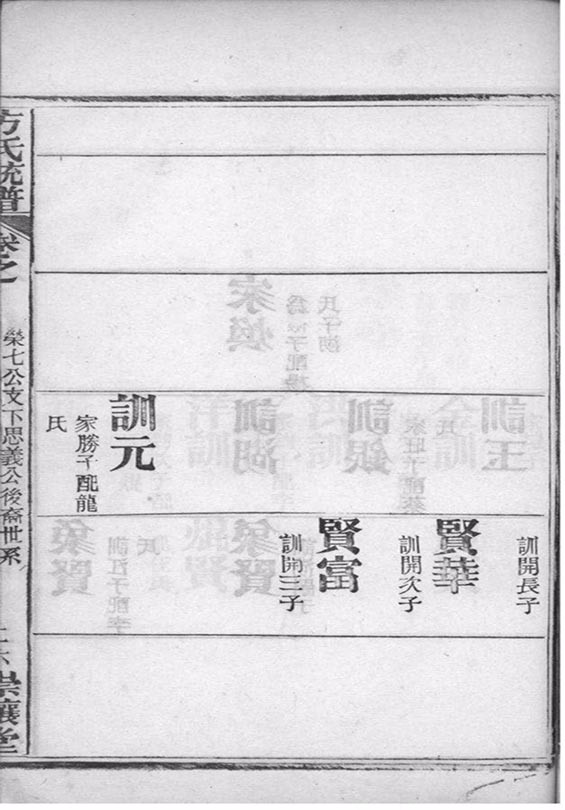 訓元
家勝子配龍
氏
訓開長子
賢華
訓開次子
賢富
訓開三子
方氏統譜
卷之
榮七公支下思義公後裔世系
崇讓堂